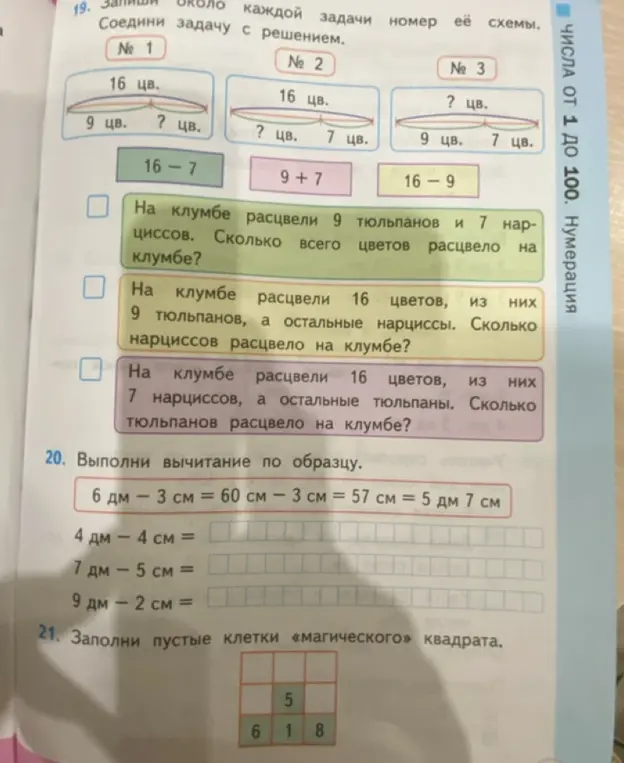 19. Запиши около каждой задачи номер её схемы.
Соедини задачу с решением.
№ 1
№ 2
№ 3
16 цв.
9 цв. ? цв.
16 цв.
? цв. 7 цв.
? цв.
9 цв. 7 цв.
16 − 7
9 + 7
16 − 9
На клумбе расцвели 9 тюльпанов и 7 нар-
циссов. Сколько всего цветов расцвело на
клумбе?
На клумбе расцвели 16 цветов, из них
9 тюльпанов, а остальные нарциссы. Сколько
нарциссов расцвело на клумбе?
На клумбе расцвели 16 цветов, из них
7 нарциссов, а остальные тюльпаны. Сколько
тюльпанов расцвело на клумбе?
20. Выполни вычитание по образцу.
6 дм − 3 см = 60 см − 3 см = 57 см = 5 дм 7 см
4 дм − 4 см =
7 дм − 5 см =
9 дм − 2 см =
21. Заполни пустые клетки «магического» квадрата.
5
6 1 8
ЧИСЛА ОТ 1 ДО 100. Нумерация